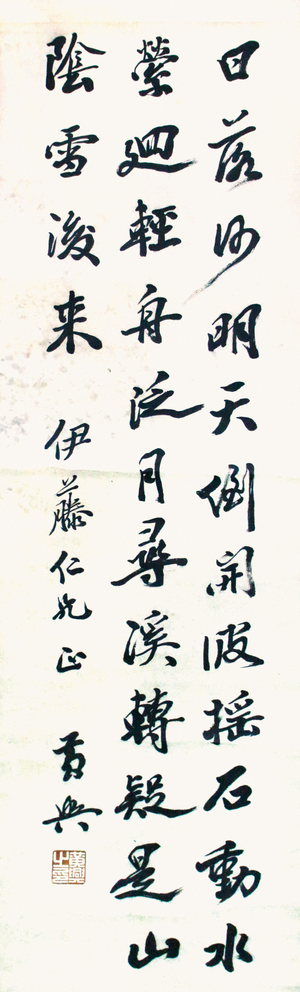 日落沙明天倒開波搖石動水
縈廻輕舟泛月尋溪轉疑是山
陰雪後来 伊藤仁兄正 黃興
黃興之印